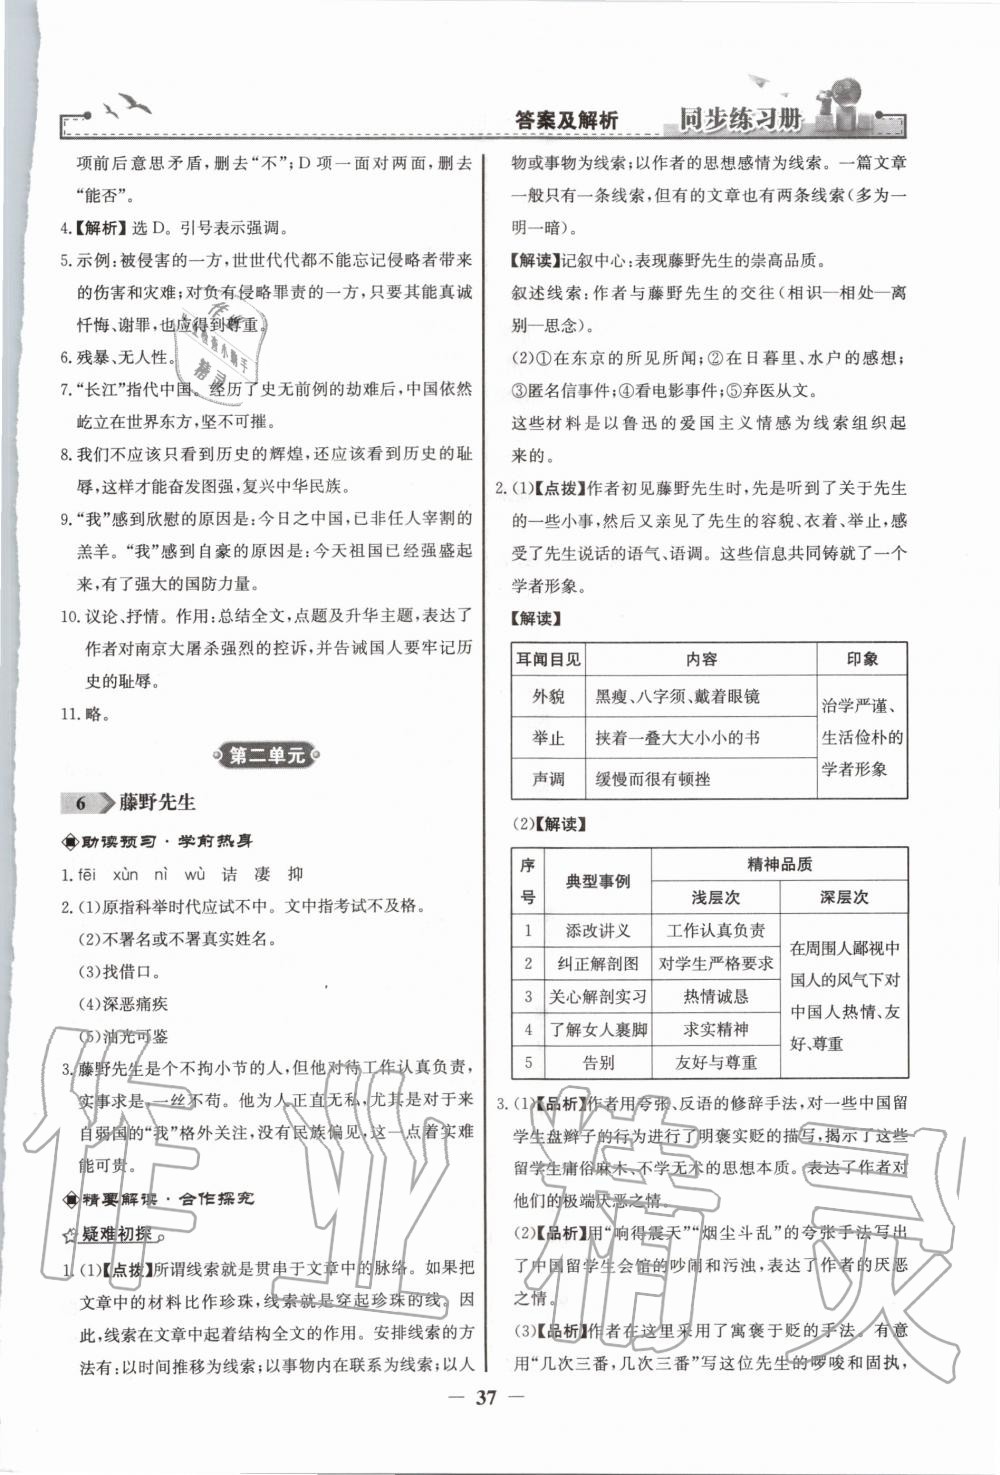 答案及解析
同步练习册
项前后意思矛盾,删去“不”;D 项一面对两面,删去
“能否”。
4.【解析】选 D。引号表示强调。
5. 示例:被侵害的一方,世世代代都不能忘记侵略者带来
的伤害和灾难;对负有侵略罪责的一方,只有其能真诚
忏悔、谢罪,也应得到尊重。
6. 残暴、无人性。
7. “长江”指代中国。经历了史无前例的劫难后,中国依然
屹立在世界东方,坚不可摧。
8. 我们不应该只看到历史的辉煌,还应该看到历史的耻
辱,这样才能奋发图强,复兴中华民族。
9. “我”感到欣慰的原因是:今日之中国,已非任人宰割的
羔羊。“我”感到自豪的原因是:今天祖国已经强盛起
来,有了强大的国防力量。
10. 议论、抒情。作用:总结全文,点题及升华主题,表达了
作者对南京大屠杀强烈的控诉,并告诫国人要牢记历
史的耻辱。
11. 略。
第二单元
6 藤野先生
助读预习·学前热身
1. fěi xùn nì wù 诘 凄 抑
2. (1)原指科举时代应试不中。文中指考试不及格。
(2)不署名或不署真实姓名。
(3)找借口。
(4)深恶痛疾
(5)油光可鉴
3. 藤野先生是个不拘小节的人,但他对待工作认真负责,
实事求是,一丝不苟。他为人正直无私,尤其是对于来
自弱国的“我”格外关注,没有民族偏见,这一点着实难
能可贵。
精要解读·合作探究
疑难初探
1. (1)【点拨】所谓线索就是贯串于文章中的脉络。如果把
文章中的材料比作珍珠,线索就是穿起珍珠的线。因
此,线索在文章中起着结构全文的作用。安排线索的方
法有:以时间推移为线索;以事物内在联系为线索;以人
物或事物为线索;以作者的思想感情为线索。一篇文章
一般只有一条线索,但有的文章也有两条线索(多为一
明一暗)。
【解读】记叙中心:表现藤野先生的崇高品质。
叙述线索:作者与藤野先生的交往(相识—相处—离
别—思念)。
(2)①在东京的所见所闻;②在日暮里、水户的感想;
③匿名信事件;④看电影事件;⑤弃医从文。
这些材料是以鲁迅的爱国主义情感为线索组织起
来的。
2. (1)【点拨】作者初见藤野先生时,先是听到了关于先生
的一些小事,然后又亲见了先生的容貌、衣着、举止,感
受了先生说话的语气、语调。这些信息共同铸就了一个
学者形象。
【解读】
耳闻目见 内容 印象
外貌 黑瘦、八字须、戴着眼镜
举止 挟着一叠大大小小的书
声调 缓慢而很有顿挫
治学严谨、
生活俭朴的
学者形象
(2)【解读】
序号 典型事例 精神品质
浅层次 深层次
1 添改讲义 工作认真负责
2 纠正解剖图 对学生严格要求
3 关心解剖实习 热情诚恳
4 了解女人裹脚 求实精神
5 告别 友好与尊重
在周围人鄙视中
国人的风气下对
中国人热情、友
好、尊重
3. (1)【品析】作者用夸张、反语的修辞手法,对一些中国留
学生盘辫子的行为进行了明褒实贬的描写,揭示了这些
留学生庸俗麻木、不学无术的思想本质。表达了作者对
他们的极端厌恶之情。
(2)【品析】用“响得震天”“烟尘斗乱”的夸张手法写出
了中国留学生会馆的吵闹和污浊,表达了作者的厌恶
之情。
(3)【品析】作者在这里采用了寓褒于贬的手法。有意
用“几次三番,几次三番”写这位先生的啰唆和固执,
— 37 —
作业精灵